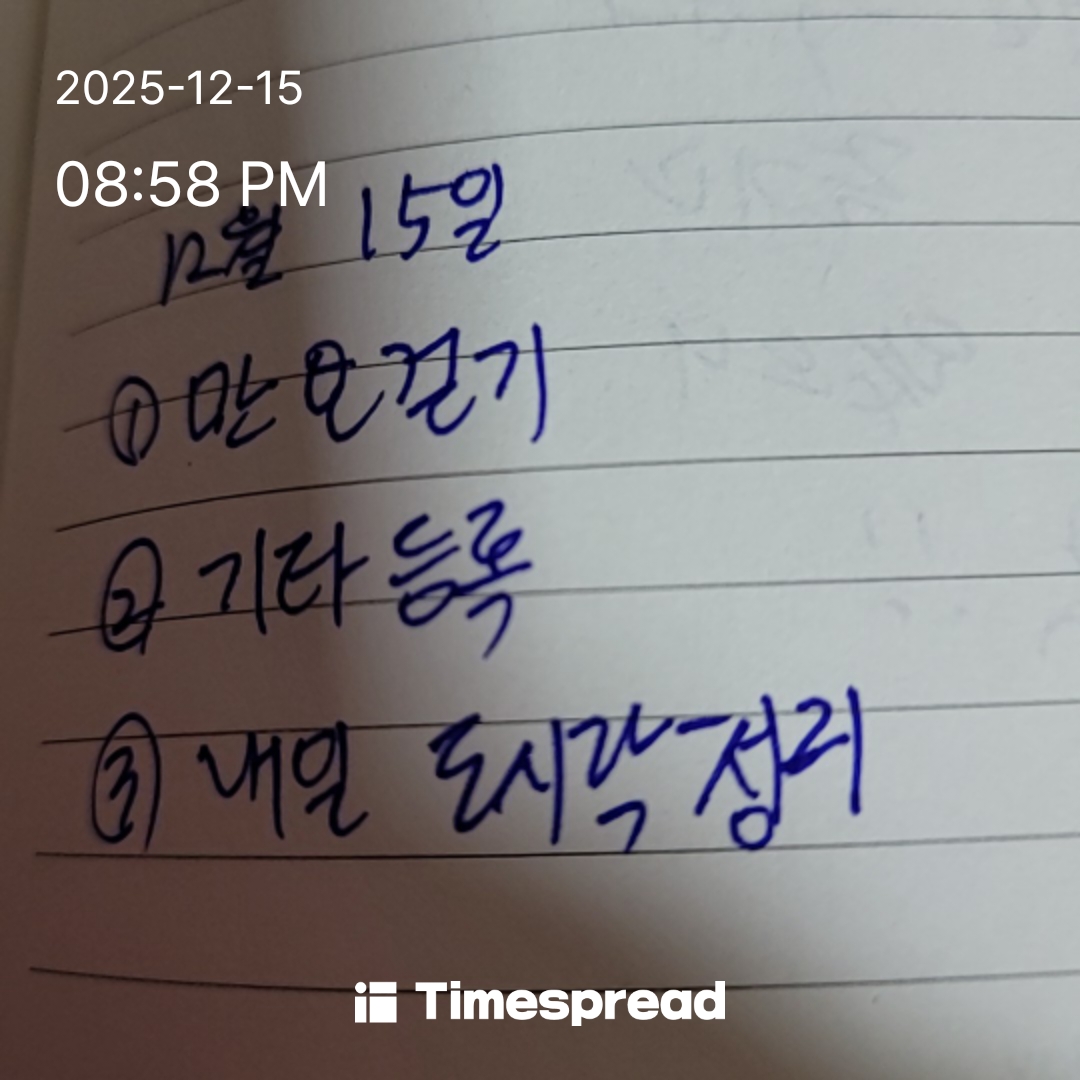 2025-12-15
08:58 PM
12월 15일
① 만보걷기
② 기타등록
③ 내일 도시락정리
Timespread